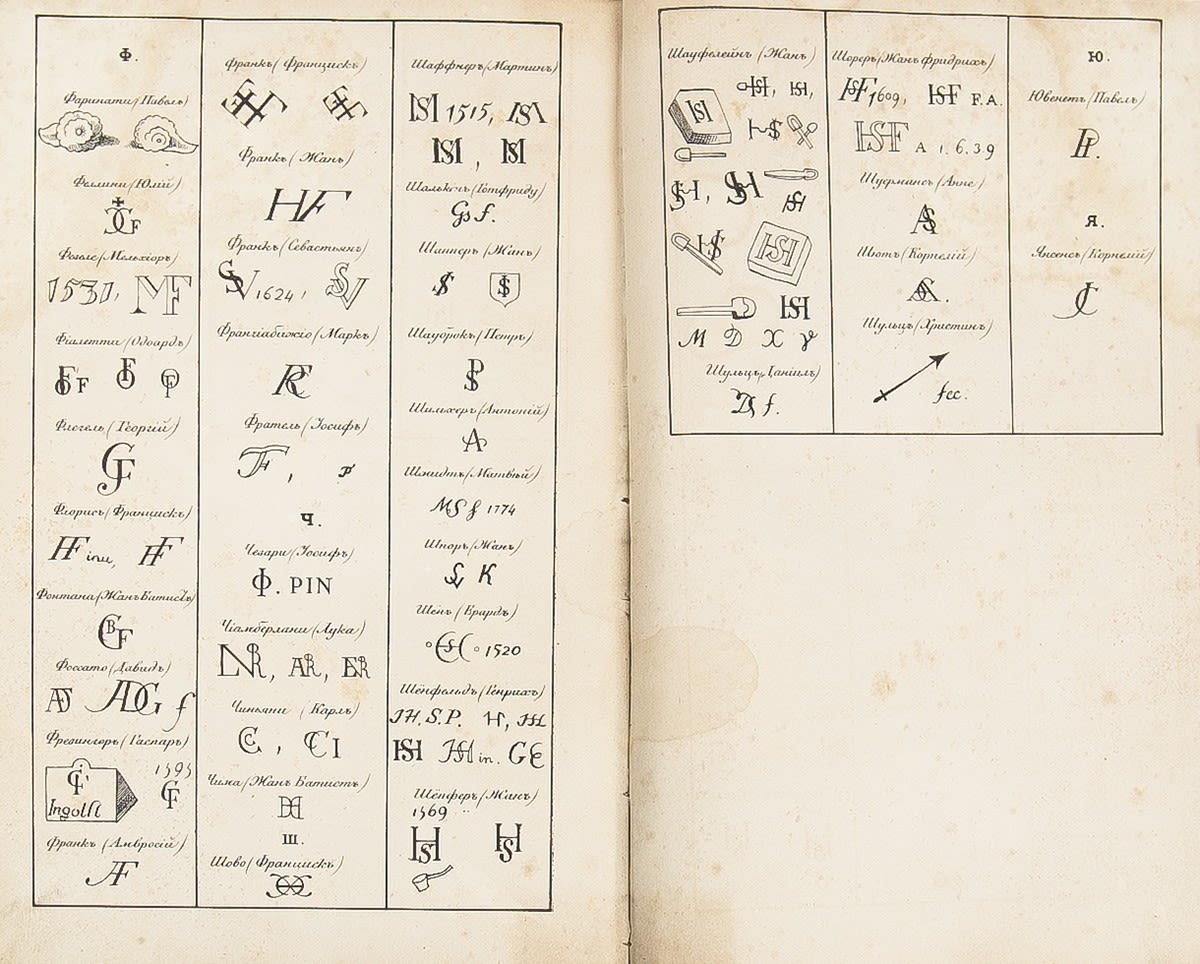 Ф.
Фаринати (Павелъ)
Феллини (Юлій)
GF
Фозале (Мельхіоръ)
1531, MF
Фіалетти (Одоардъ)
Флегель (Георгій)
GF
Флорисъ (Францискъ)
FF inu, FF
Фонтана (Жанъ Батистъ)
BGF
Фоссато (Давидъ)
AD ADG f
Фрезингеръ (Гаспаръ)
1595
GF GF
Ingolst
Франкъ (Амвросій)
AF
Франкъ (Францискъ)
Франкъ (Жанъ)
HF
Франкъ (Севастьянъ)
SV 1624, SV
Франчіабижіо (Маркъ)
Фратель (Іосифъ)
Ч.
Чезари (Іосифъ)
Ф. PIN
Чіамберлани (Лука)
LR, AR, ER
Чиньяни (Карлъ)
CC, CCI
Чима (Жанъ Батистъ)
Ш.
Шово (Францискъ)
Шаффнеръ (Мартинъ)
MS 1515, MS
MS, MS
Шалькенъ (Готфридъ)
Gs f.
Шаперъ (Жанъ)
Шауброкъ (Петръ)
PS
Шильхеръ (Антоній)
Шмидтъ (Матвѣй)
MS f 1774
Шноръ (Жанъ)
K
Шёнъ (Ерардъ)
1520
Шёнфельдъ (Генрихъ)
JH. S. P. H, JH
HS JH in. GE
Шёпферъ (Жанъ)
1569
HS HS
Шауфелейнъ (Жанъ)
HS HS, HS,
HS
HS, SH HS
HS HS
HS
M D X V
Шульцъ (Даніилъ)
DS f.
Шореръ (Жанъ Фридрихъ)
HSF 1609, HSF F. A.
HSF A 1. 6. 3. 9
Шурманъ (Анне)
AS
Шютъ (Корнелій)
Шульцъ (Христинъ)
fec.
Ю.
Ювенетъ (Павелъ)
Я.
Янсенъ (Корнелій)
JC